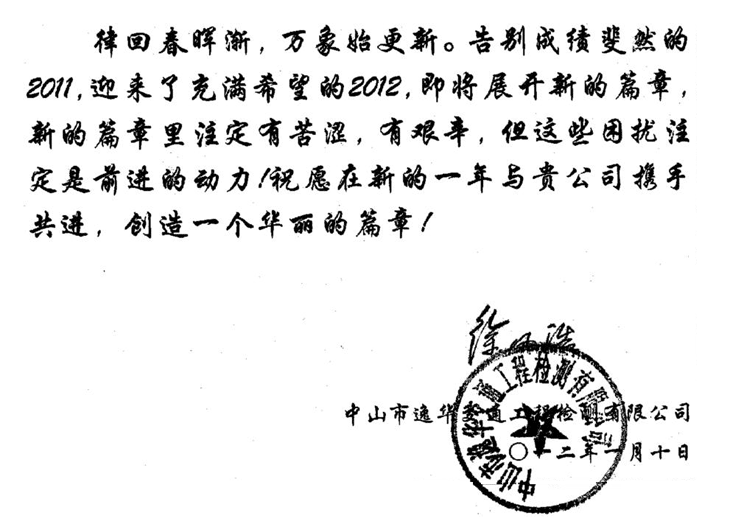 律回春晖渐，万象始更新。告别成绩斐然的
2011，迎来了充满希望的2012，即将展开新的篇章，
新的篇章里注定有苦涩，有艰辛，但这些困扰注
定是前进的动力！祝愿在新的一年与贵公司携手
共进，创造一个华丽的篇章！
徐 浩
中山市逸华交通工程检测有限公司
中山市逸华交通工程检测有限公司
〇一二年一月十日